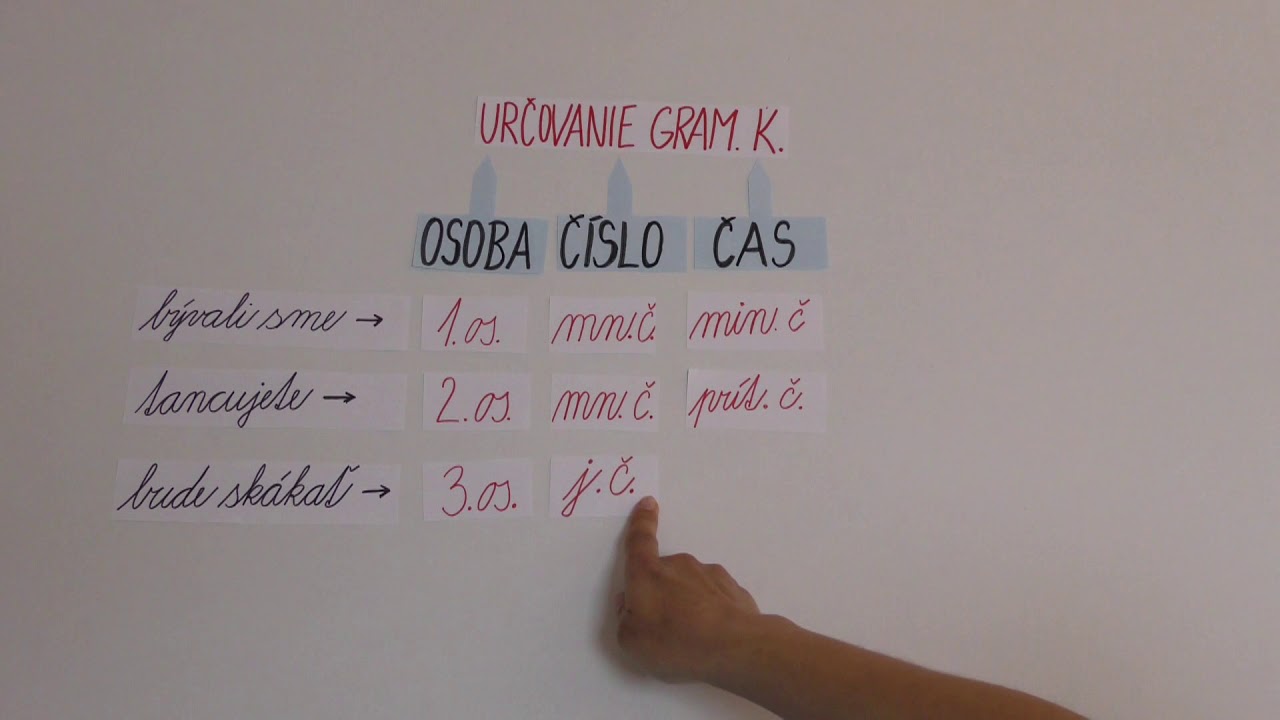 URČOVANIE GRAM. K.
OSOBA ČÍSLO ČAS
bývali sme → 1.os. mn.č. min. č
tancujete → 2.os. mn.č. prít. č.
bude skákať → 3.os. j.č.